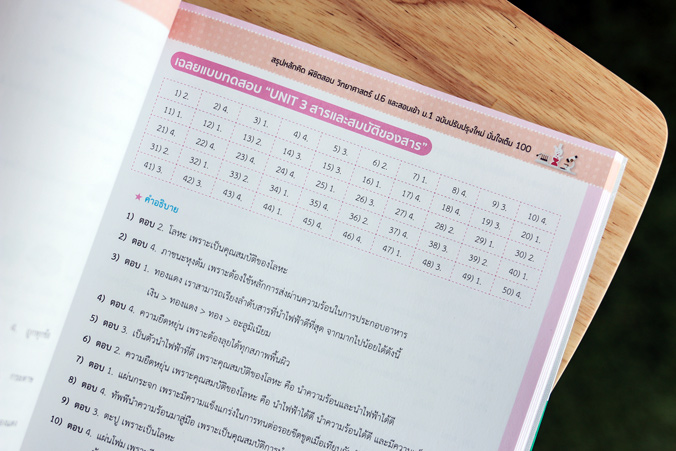 สรุปหลักคิด พิชิตสอบ วิทยาศาสตร์ ป.6 และสอบเข้า ม.1 ฉบับปรับปรุงใหม่ มั่นใจเต็ม 100
เฉลยแบบทดสอบ "UNIT 3 สารและสมบัติของสาร"
1) 2. 2) 4. 3) 1. 4) 4. 5) 3. 6) 2. 7) 1. 8) 4. 9) 3. 10) 4.
11) 1. 12) 1. 13) 2. 14) 3. 15) 3. 16) 1. 17) 4. 18) 4. 19) 3. 20) 1.
21) 4. 22) 4. 23) 4. 24) 4. 25) 1. 26) 3. 27) 4. 28) 2. 29) 1. 30) 2.
31) 2. 32) 1. 33) 2. 34) 1. 35) 4. 36) 2. 37) 4. 38) 3. 39) 2. 40) 1.
41) 3. 42) 3. 43) 4. 44) 1. 45) 4. 46) 4. 47) 1. 48) 3. 49) 1. 50) 4.
คำอธิบาย
1) ตอบ 2. โลหะ เพราะเป็นคุณสมบัติของโลหะ
2) ตอบ 4. ภาชนะหุงต้ม เพราะต้องใช้หลักการส่งผ่านความร้อนในการประกอบอาหาร
3) ตอบ 1. ทองแดง เราสามารถเรียงลำดับสารที่นำไฟฟ้าดีที่สุด จากมากไปน้อยได้ดังนี้
เงิน > ทองแดง > ทอง > อะลูมิเนียม
4) ตอบ 4. ความยืดหยุ่น เพราะต้องลุยได้ทุกสภาพพื้นผิว
5) ตอบ 3. เป็นตัวนำไฟฟ้าที่ดี เพราะคุณสมบัติของโลหะ คือ นำความร้อนและนำไฟฟ้าได้ดี
6) ตอบ 2. ความยืดหยุ่น เพราะคุณสมบัติของโลหะ คือ นำไฟฟ้าได้ดี นำความร้อนได้ดี และมีความ
7) ตอบ 1. แผ่นกระจก เพราะมีความแข็งแกร่งในการทนต่อรอยขีดขูดเมื่อเทียบกับ
8) ตอบ 4. ทัพพีนำความร้อนมาสู่มือ เพราะเป็นคุณสมบัติการนำ
9) ตอบ 3. ตะปู เพราะเป็นโลหะ
10) ตอบ 4. แผ่นโฟม เพราะ